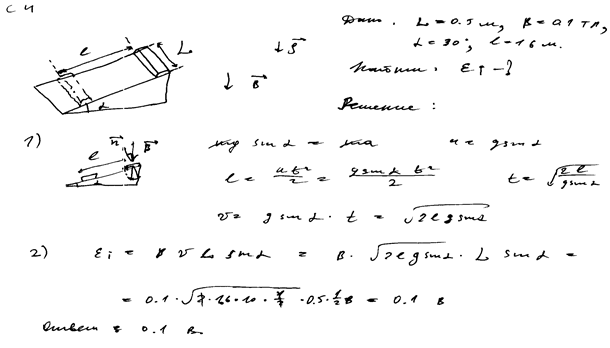 С 4
Дано: L = 0.5 м, B = 0.1 Тл,
α = 30°, l = 1.6 м.
Найти: Ei - ?
Решение:
l L g⃗ B⃗ α
1) n⃗ B⃗ l
mg sin α = ma a = g sin α
l = at²/2 = g sin α t²/2 t = √(2l/(g sin α))
v = g sin α · t = √(2lg sin α)
2) Ei = B v L sin α = B · √(2lg sin α) · L sin α =
= 0.1 · √(2 · 1.6 · 10 · 1/2) · 0.5 · 1/2 В = 0.1 В
Ответ: 0.1 В.